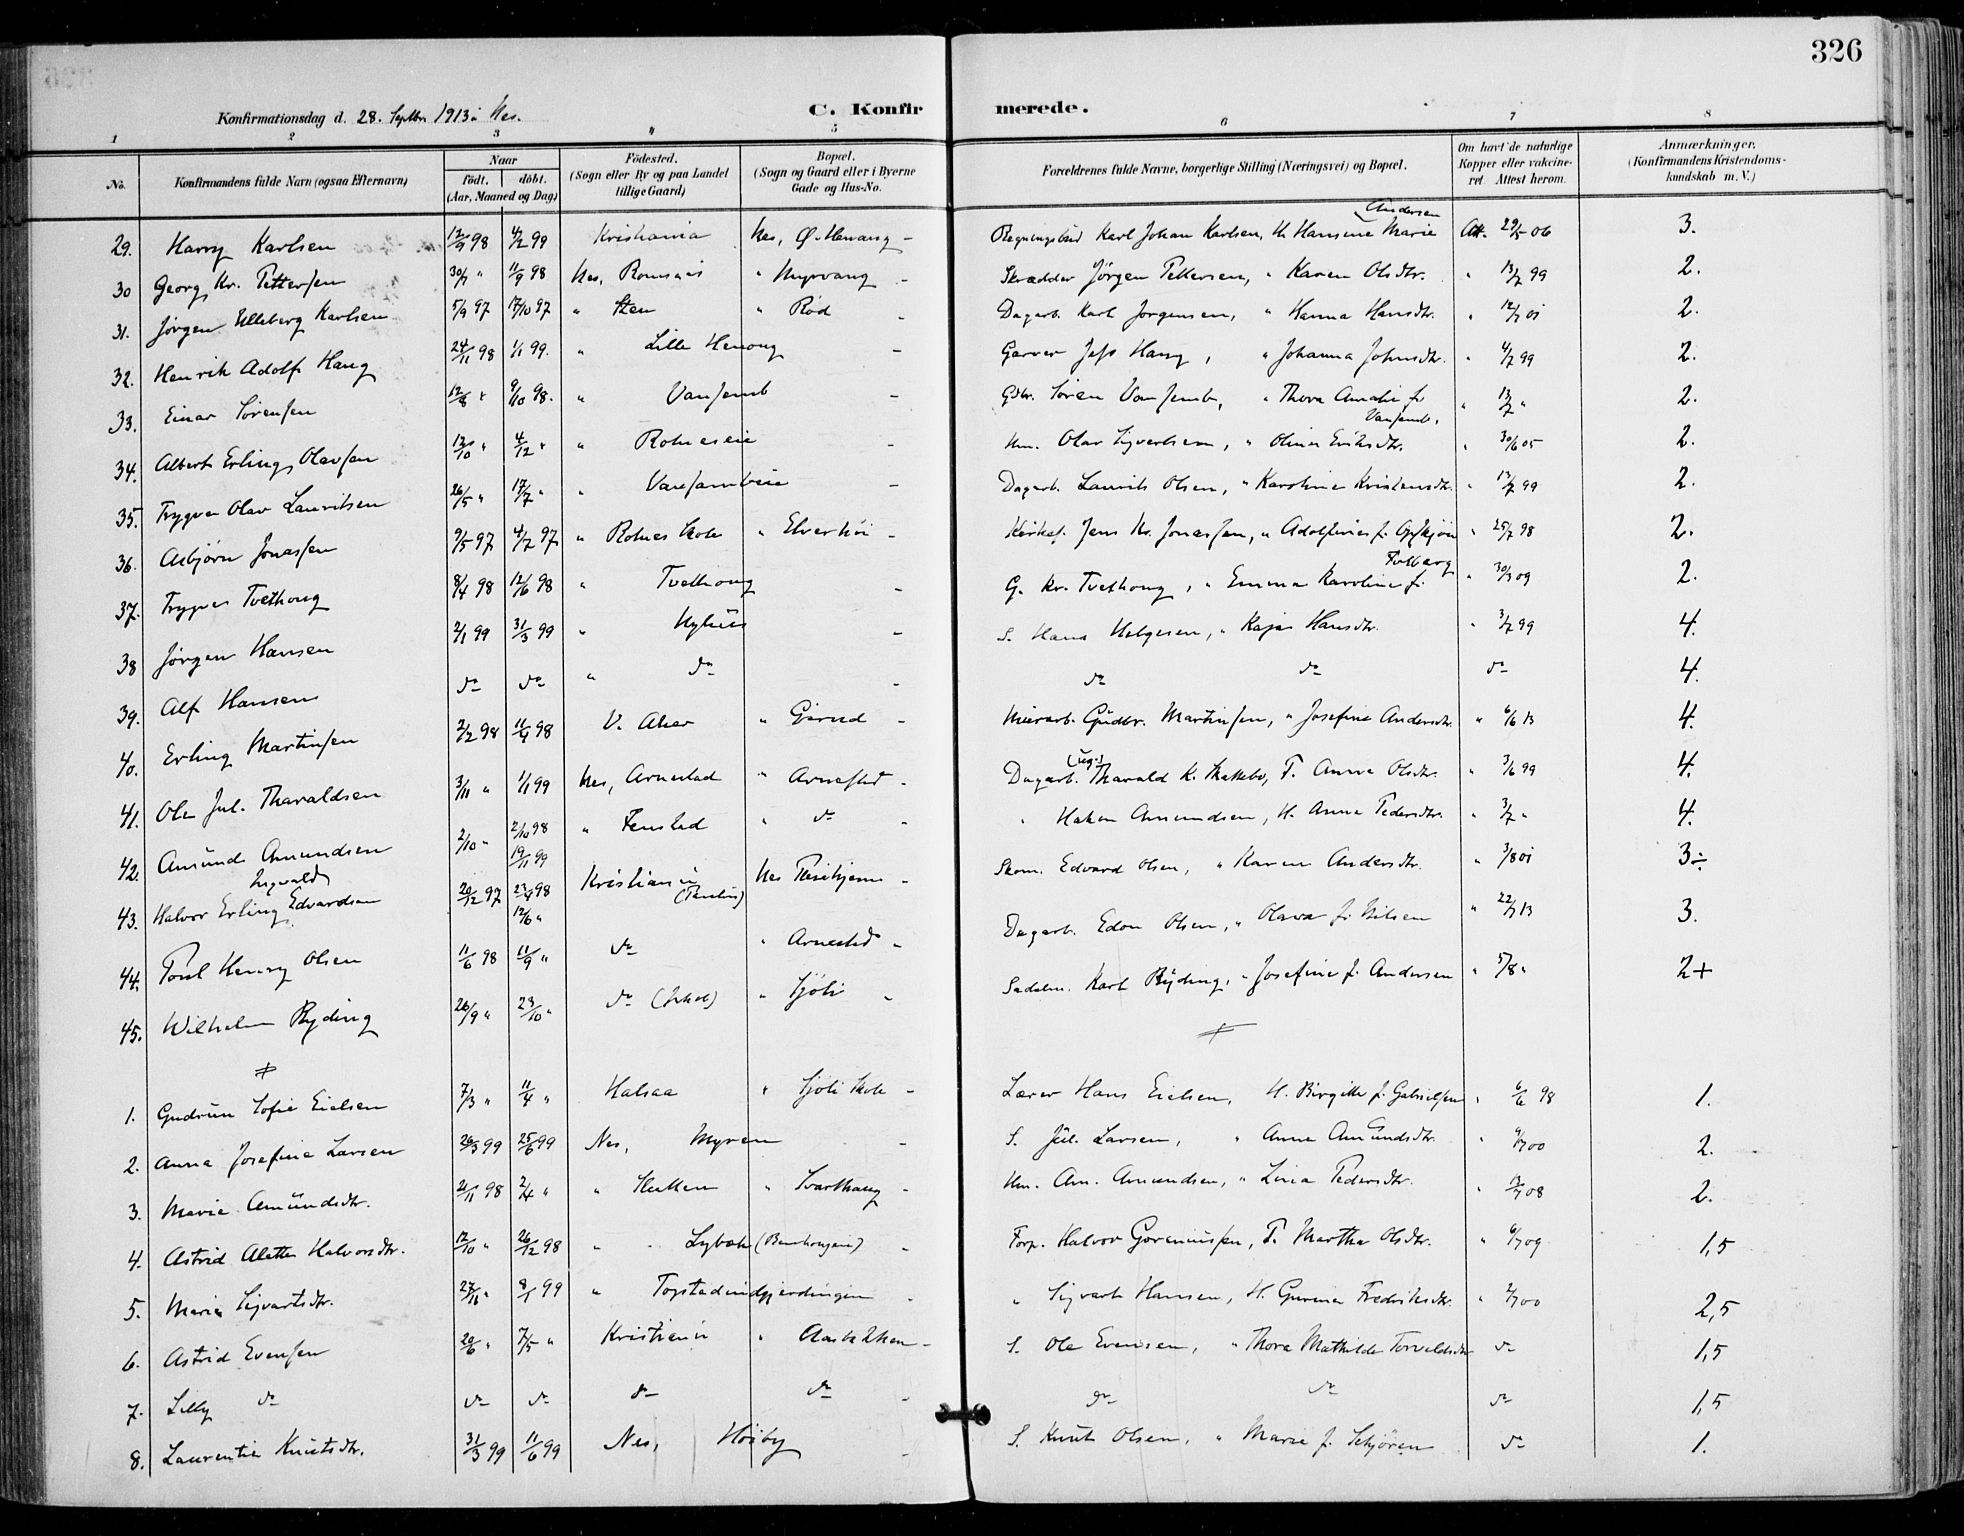 326
Konfirmationsdag d. 28. Septbr 1913 i Nes.
C. Konfirmerede.
1 2 3 " 5 6 7 8
No. Konfirmandens fulde Navn (ogsaa Efternavn) Naar født, døbt. (Aar, Maaned og Dag) Fødested. (Sogn eller By og paa Landet tillige Gaard) Bopæl. (Sogn og Gaard eller i Byerne Gade og Hus-No. Forældrenes fulde Navne, borgerlige Stilling (Næringsvei) og Bopæl. Om havt de naturlige Kopper eller vakcineret. Attest herom. Anmærkninger. (Konfirmandens Kristendomskundskab m. V.)
29. Harry Karlsen 12/9 98 4/2 99 Kristiania Nes, Ø. Henaug - Regningsbud Karl Johan Karlsen, H. Hansine Marie Andersen Att. 29/5 06 3.
30 Georg Kr. Pettersen 30/7 " 11/9 98 Nes, Romnes " Myrvang - Skrædder Jørgen Pettersen, " Karen Olsdtr. " 13/7 99 2.
31. Jørgen Elleberg Karlsen 5/9 97 17/10 97 " Sten " Rød - Dagarb. Karl Jørgensen, " Hanna Hansdtr. " 12/7 01 2.
32. Henrik Adolf Haug 24/11 98 1/1 99. " Lille Henaug - Garver Jess Haug, " Johanna Johnsdtr. " 4/7 99 2.
33. Einar Sørensen 12/8 " 9/10 98. " Vansemb - Gbr. Søren Vansemb, " Thora Amalie f. Vansemb. " 13/7 " 2.
34. Albert Erling Olavsen 13/10 " 4/12 " " Rolneseie - Hm. Olav Sigvartsen, " Olina Eriksdtr. " 30/6 05 2.
35. Trygve Olav Lauritsen 26/5 " 17/7 " " Vansambeie - Dagarb. Laurits Olsen, " Karoline Kristensdtr. " 13/7 99 2.
36. Asbjørn Jonassen 9/5 97 4/7 97 " Rolnes Skole " Elverhøi - Kirkes. Jens Kr. Jonassen, " Adolfine f. " 25/7 98 2.
37. Trygve Tvethaug 8/4 98 12/6 98 " Tvethaug - G. Kr. Tvethaug, " Emma Karoline f. " 30/3 09 2.
38 Jørgen Hansen 2/1 99 31/3 99 " Nyhus - S. Hans Helgesen, " Kaja Hansdtr. " 3/7 99 4.
39. Alf Hansen do do " do - do do do 4.
40. Erling Martinsen 2/2 98 11/4 98 V. Aker " Gjerud - Murarb. Gudbr. Martinsen, " Josefine Andersdtr. " 6/6 13 4.
41. Ole Jul. Tharaldsen 3/11 " 1/1 99 Nes, Arnestad " Arnestad - Dagarb. (ug.) Tharald K. , F. Anna Olsdtr. " 3/6 99 4.
42. Amund Amundsen 2/10 " 2/10 98 19/11 99 " Fenstad " do - " Haken Amundsen, H. Anna Pedersdtr. " 3/7 " 4.
43. Halvor Erling Ingvald Edvardsen 20/12 97 23/4 98 12/6 " Kristiania (Paulus) Nes - Skom. Edvard Olsen, " Karen Andersdtr. " 3/8 01 3÷
44. Poul Henry Olsen 11/6 98 11/9 " do " Arnestad - Dagarb. Edon Olsen, " Olava f. Nilsen " 22/7 13 3.
45. Wilhelm Ryding 26/9 " 23/10 " do (Jakob) " Sjøli - Sadelm. Karl Ryding, " Josefine f. Andersen " 5/8 " 2+
1. Gudrun Sofie Eielsen 7/3 " 11/4 " Halsaa " Sjøli Skole - Lærer Hans Eielsen, H. Birgitte f. Gabrielsen " 6/6 98 1.
2. Anna Josefine Larsen 26/3 99 25/6 99 Nes, Myren - S. Jul. Larsen, " Anna Amundsdtr. " 9/7 00 2.
3. Marie Amundsdtr. 21/11 98 2/4 " " Slutten " Svarthaug - Hm. Am. Amundsen, " Lina Pedersdtr. " 13/7 08 2.
4. Astrid Alette Halvorsdtr. 12/10 " 26/12 98 " Lybæk - Forp. Halvor , F. Martha Olsdtr. " 6/7 09 1,5
5. Maria Sigvartsdtr. 27/11 " 8/1 99 " - " Sigvart Hansen, H. Gurina Fredriksdtr. " 2/7 00 2,5
6. Astrid Evensen 20/6 " 7/5 " Kristiania " - S. Ole Evensen, " Thora Mathilde Torvaldsdtr do 1,5
7. Lilly do do do do do - do do do 1,5
8. Laurentie Knutsdtr. 31/3 99 11/6 99 Nes, Høiby - S. Knut Olsen, " Marie f. Schjøren do 1.